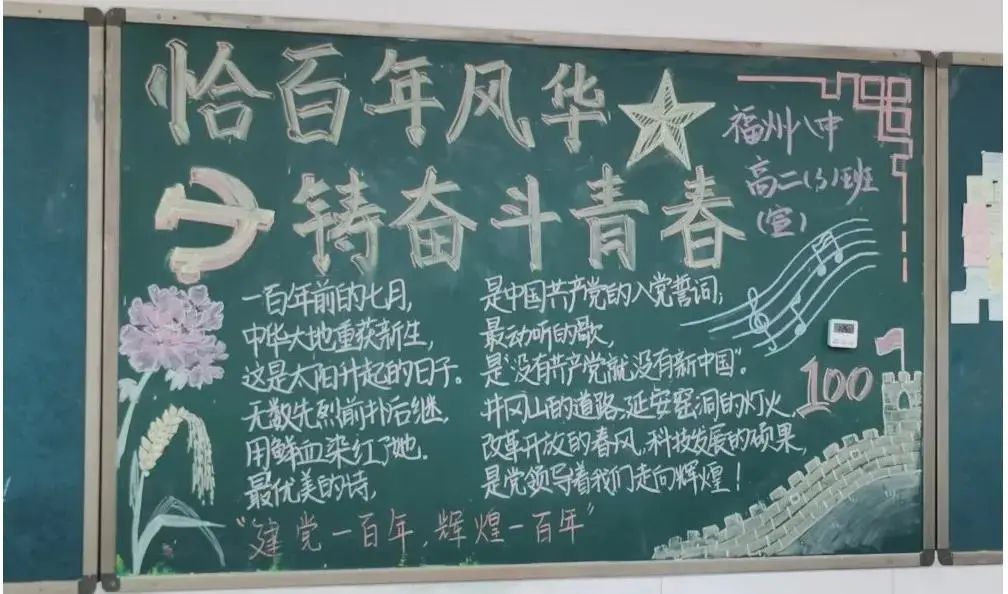 恰百年风华
铸奋斗青春
福州八中
高二(3)班
(宣)
一百年前的七月,
中华大地重获新生,
这是太阳升起的日子.
无数先烈前扑后继.
用鲜血染红了她.
最优美的诗,
是中国共产党的入党誓词;
最动听的歌,
是“没有共产党就没有新中国”.
井冈山的道路,延安窑洞的灯火,
改革开放的春风,科技发展的硕果,
是党领导着我们走向辉煌!
100
“建党一百年,辉煌一百年”